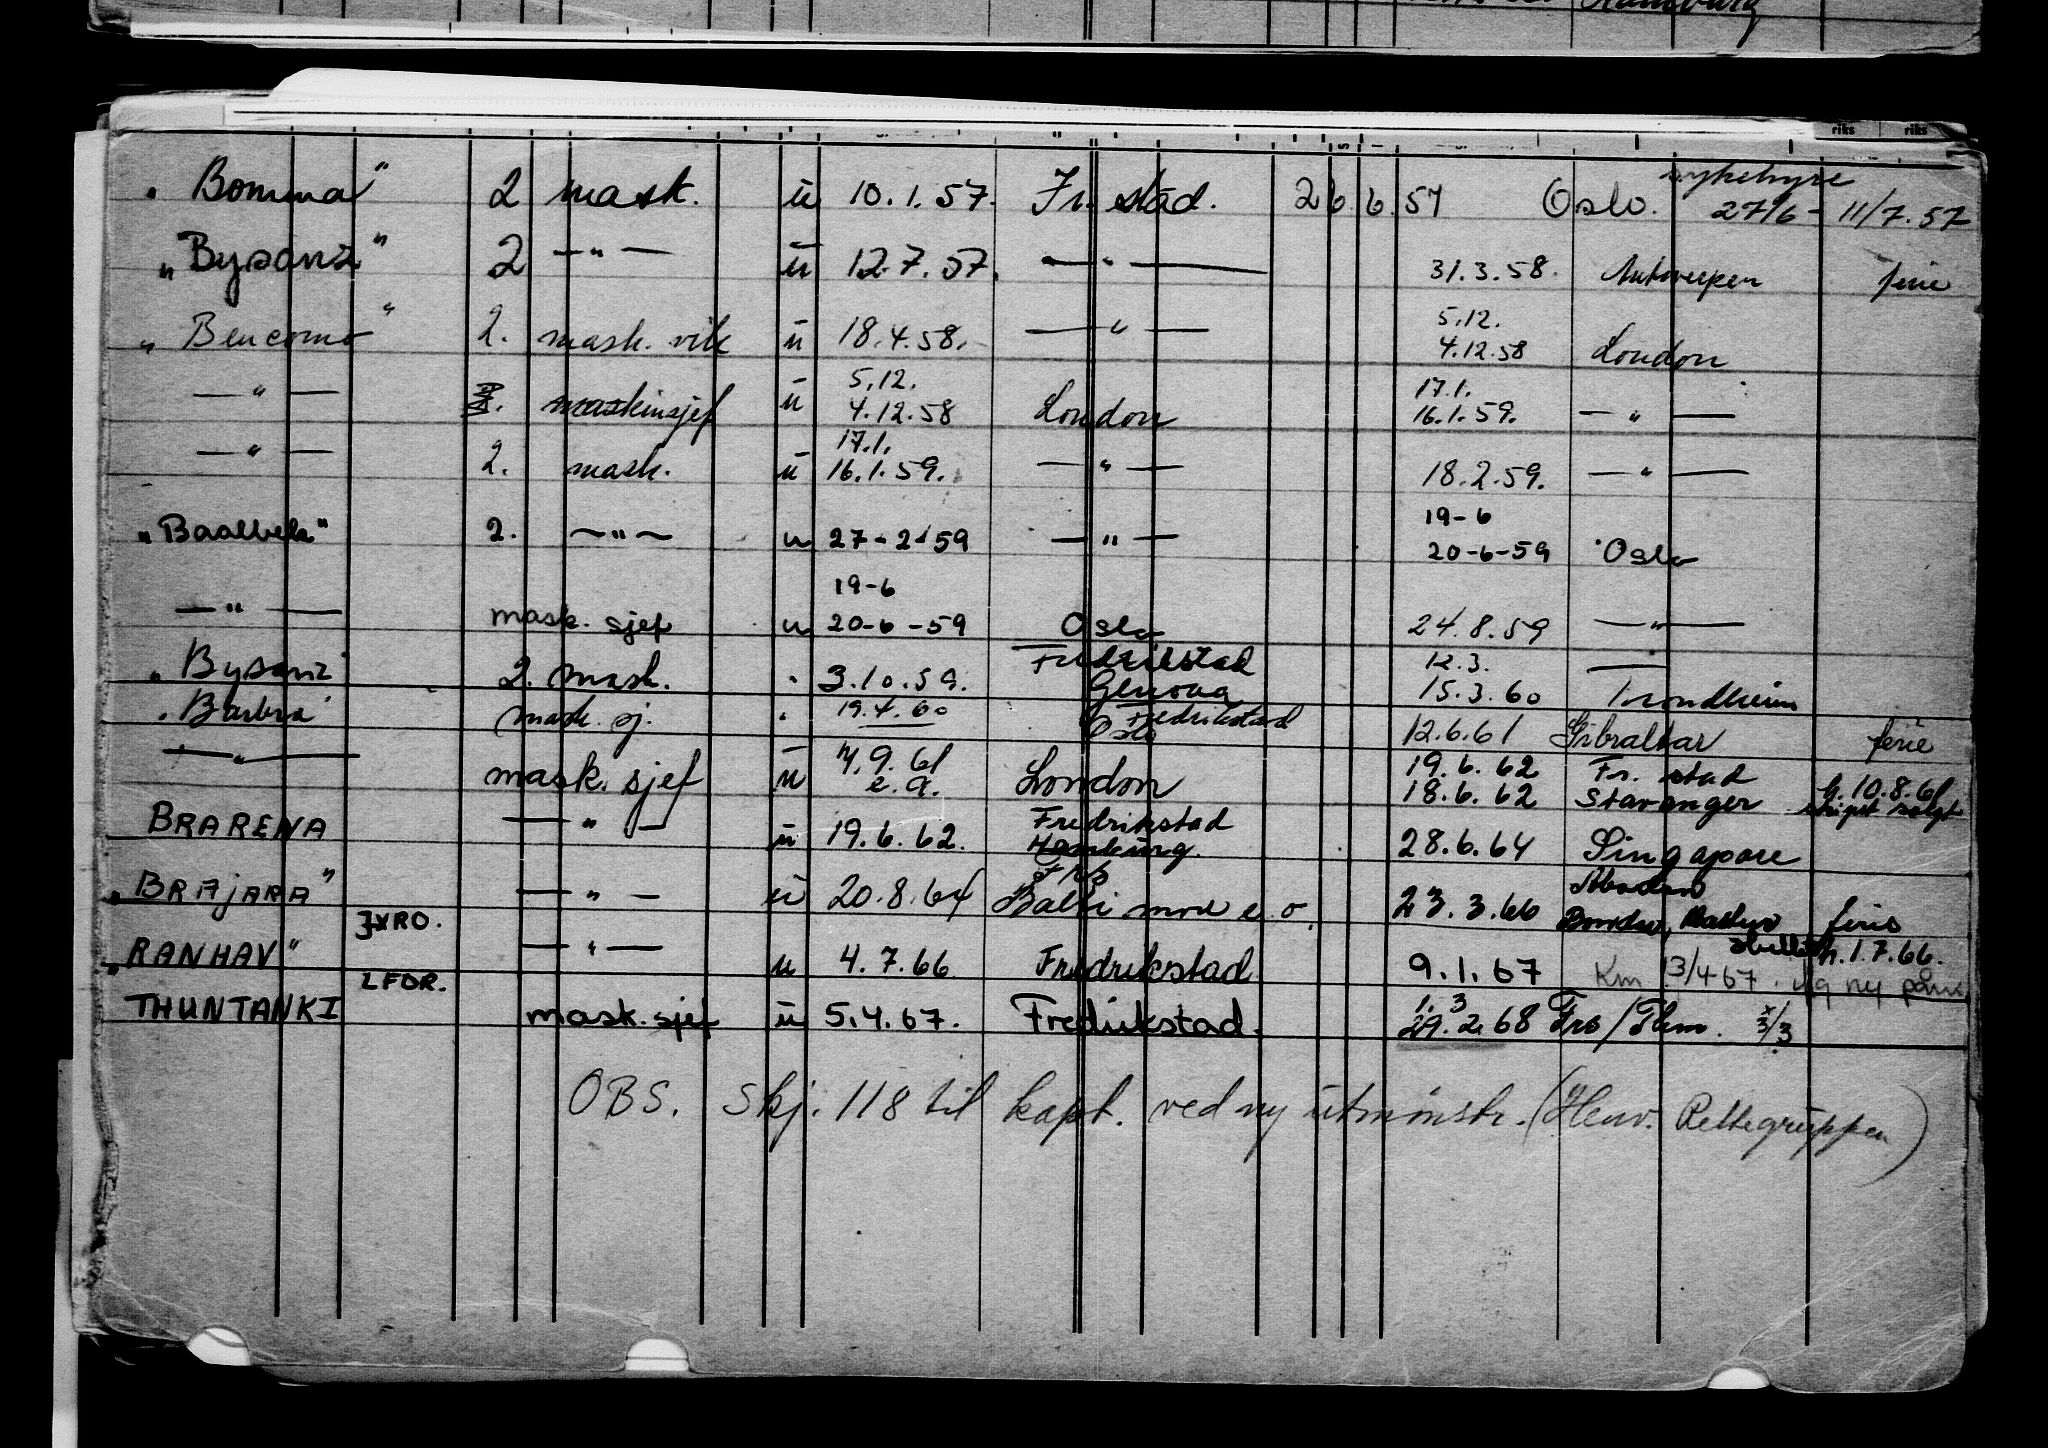 Hamburg
riks riks
sykehyre
"Bomma" 2 mask. ü 10.1.57. Fr. stad. 26 6 57 Oslo. 27/6 - 11/7.57
"Bysanz" 2 —"— ü 12.7.57. —"— 31.3.58. Antwerpen ferie
5.12.
"Bencomo" 2. mask. vik ü 18.4.58. —"— 4.12.58 London
5.12. 17.1.
—"— maskinsjef ü 4.12.58 London 16.1.59. —"—
17.1.
—"— 2. mask. ü 16.1.59. —"— 18.2.59. —"—
19-6
"Baalbek" 2. —"— u 27-2-59 —"— 20-6-59 Oslo
19-6
—"— mask. sjef u 20-6-59 Oslo 24.8.59 —"—
Fredrikstad 12.3.
"Bysanz" 2. mask. " 3.10.59. Genova 15.3.60 Trondheim
19.4.60 Fredrikstad
"Barbra" mask. sj. " Oslo 12.6.61 Gibraltar ferie
—"— mask. sjef ü 7.9.61 London 19.6.62 Fr. stad h. 10.8.61
e.a. 18.6.62 Stavanger skipet solgt
Fredrikstad
BRARENA —"— ü 19.6.62. Hamburg. 28.6.64 Singapore
Frs Abadan
"BRAJARA" —"— ü 20.8.64 Balti mod e.o. 23.3.66 Bandar Mashur ferie
JXRO. h. 1.7.66.
"RANHAV" —"— u 4.7.66 Fredrikstad 9.1.67 Km 13/4 67. ny
LFDR. 1. 3
THUNTANKI mask. sjef ü 5.4.67. Fredrikstad. 29.2.68 Frs/Thm. x 3/3
OBS. Skj. 118 til kapt. ved ny utmønstr. (Henv. Rettegruppen)